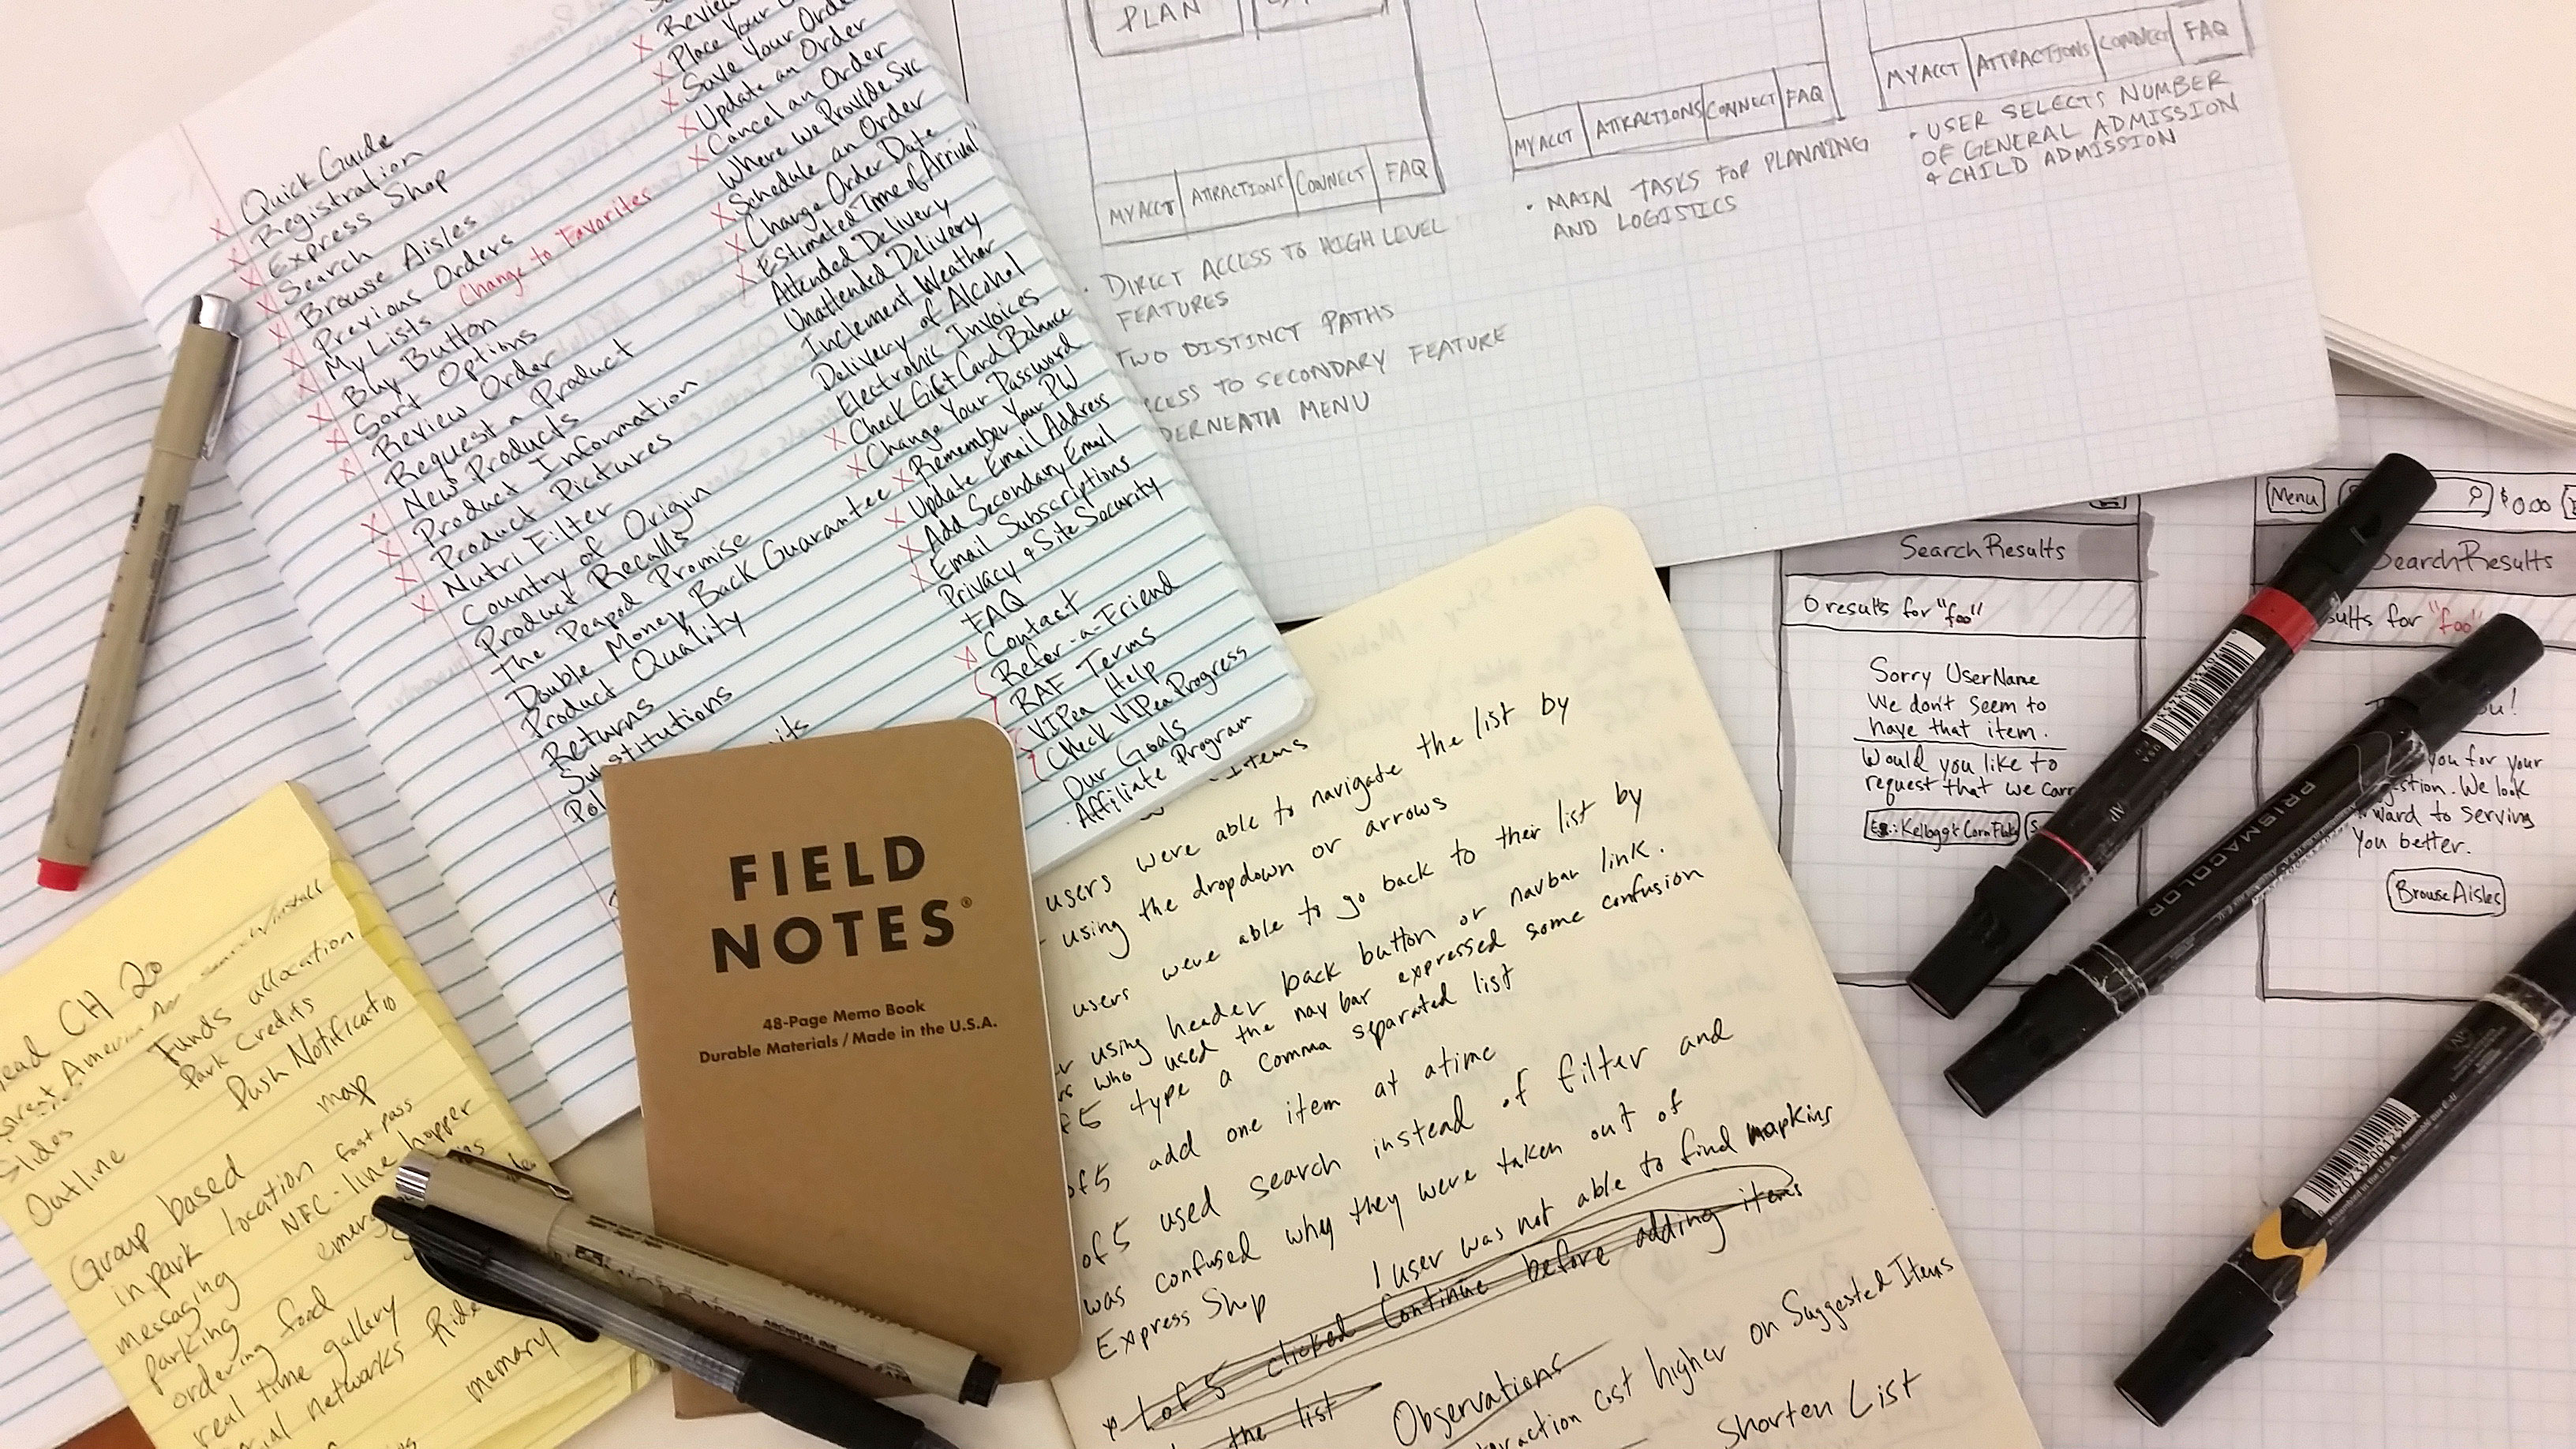 Quick Guide
Registration
Express Shop
Search
Browse Aisles
Previous Orders
My Lists Change to Favorites
Buy Button
Sort Options
Review Order
Request a Product
New Products
Product Information
Product Pictures
Nutri Filter
Country of Origin
Product Recalls
The Peapod Promise
Double Money Back Guarantee
Product Quality
Returns
Substitutions
Review
Place Your
Save Your Order
Update an Order
Cancel an Order
Where We Provide Svc
Schedule an Order
Change Order Date
Estimated Time of Arrival
Attended Delivery
Unattended Delivery
Inclement Weather
Delivery of Alcohol
Electronic Invoices
Check Gift Card Balance
Change Your Password
Remember Your PW
Update Email Address
Add Secondary Email
Email Subscriptions
Privacy & Site Security
FAQ
Contact
Refer-a-Friend
RAF Terms
VIPea Help
Check VIPea Progress
Our Goals
Affiliate Program
PLAN
MY ACCT ATTRACTIONS CONNECT FAQ
• DIRECT ACCESS TO HIGH LEVEL
FEATURES
TWO DISTINCT PATHS
TO SECONDARY FEATURE
MENU
MY ACCT ATTRACTIONS CONNECT FAQ
• MAIN TASKS FOR PLANNING
AND LOGISTICS
MY ACCT ATTRACTIONS CONNECT FAQ
• USER SELECTS NUMBER
OF GENERAL ADMISSION
& CHILD ADMISSION
Search Results
0 results for "foo"
Sorry UserName
We don't seem to
have that item.
Would you like to
request that we
Menu $0.00
Search Results
for "foo"
you for your
We look
to serving
you better.
Browse Aisles
PRISMACOLOR
FIELD
NOTES®
48-Page Memo Book
Durable Materials / Made in the U.S.A.
Items
users were able to navigate the list by
using the dropdown or arrows
users were able to go back to their list by
using header back button or navbar link.
who used the nav bar expressed some confusion
of 5 type a comma separated list
of 5 add one item at a time
of 5 used search instead of filter and
was confused why they were taken out of
Express Shop
1 user was not able to find napkins
1 of 5 clicked Continue before adding items
the list
Observations
cost higher on Suggested Items
Shorten List
CH 20
Slides
Outline
Funds allocation
Park Credits
Push Notificatio
map
Group based
in park location fast pass
messaging NFC - line hopper
parking
ordering food
real time gallery
networks Ride
memary